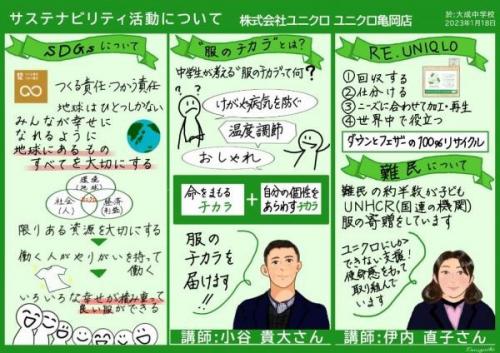 サステナビリティ活動について
株式会社ユニクロ ユニクロ亀岡店
於:大成中学校
2023年1月18日
SDGsについて
12
つくる責任つかう責任
地球はひとつしかない
みんなが幸せに
なれるように
地球にあるもの
すべてを大切にする
環境
(地球)
社会
(人)
経済
(利益)
限りある資源を大切にする
働く人がやりがいを持って
働く
いろいろな幸せが積み重って
良い服ができる
"服のチカラ"とは?
中学生が考える"服のチカラ"って何?
けがや病気を防ぐ
温度調節
おしゃれ
命をまもる
チカラ
+
自分の個性を
あらわすチカラ
服の
チカラを
届けます!!
講師:小谷 貴大さん
RE.UNIQLO
①回収する
②仕分ける
③ニーズに合わせて加工・再生
④世界中で役立つ
ダウンとフェザーの100%リサイクル
難民について
難民の約半数が子ども
UNHCR(国連の機関)
服の寄贈をしています
ユニクロにしか
できない支援!
使命感をもって
取り組んで
います
講師:伊内 直子さん